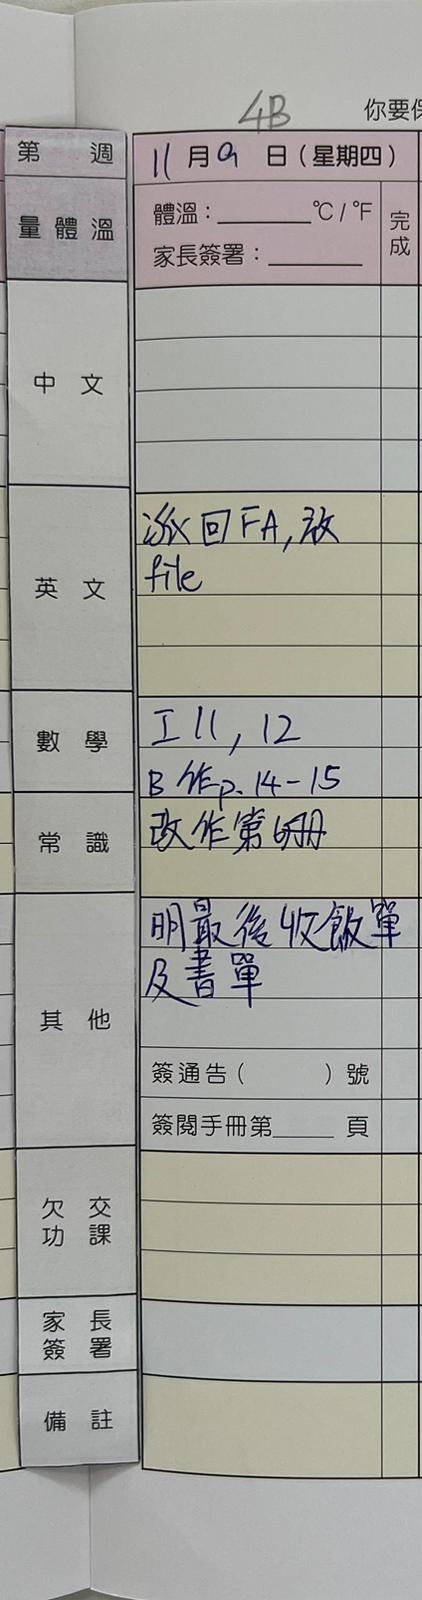 4B
你要保
第 週
11月9日(星期四)
量體溫
體溫:________℃/℉
完成
家長簽署:________
中文
英文
派回FA,放
file
數學
工11,12
B作p.14-15
常識
改作第6冊
其他
明最後收飯單
及書單
簽通告( )號
簽閱手冊第____頁
欠交
功課
家長
簽署
備註